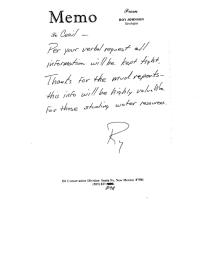 Memo
From
ROY JOHNSON
Geologist
To
Per your verbal request all
information will be kept tight.
Thanks for the mud reports-
this info will be highly valuable
for those studying water resources.
Roy
Oil Conservation Division Santa Fe, New Mexico 87501